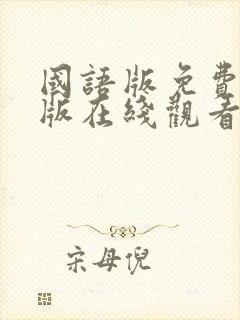 國語版免費
版在綫觀看
宋母倪